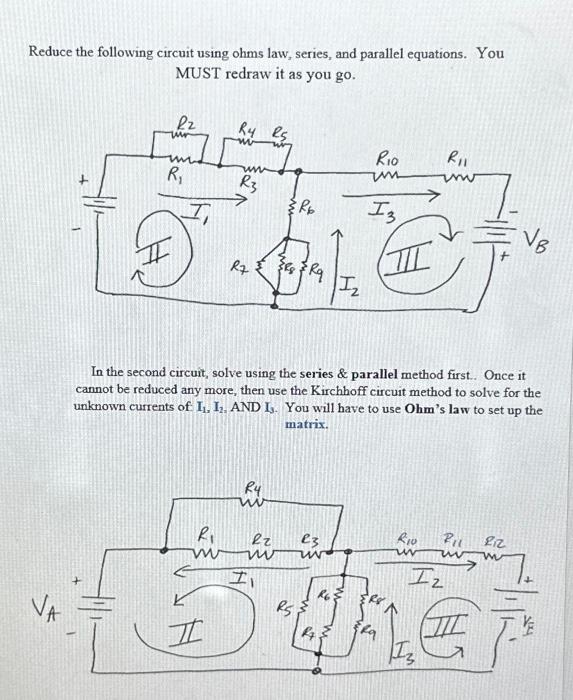 Reduce the following circuit using ohms law, series, and parallel equations. You
MUST redraw it as you go.
R2
R4 R5
R10 R11
R1
R3
+
I1
R6
I3
-
-
VB
II
III
R7 R8 R9
I2
+
In the second circuit, solve using the series & parallel method first.. Once it
cannot be reduced any more, then use the Kirchhoff circuit method to solve for the
unknown currents of: I1, I2, AND I3. You will have to use Ohm's law to set up the
matrix.
R4
R1 R2 R3
R10 R11 R12
+
I1
I2
+
VA
R5 R6 R8
II
R7 R9
III
VE
-
-
I3